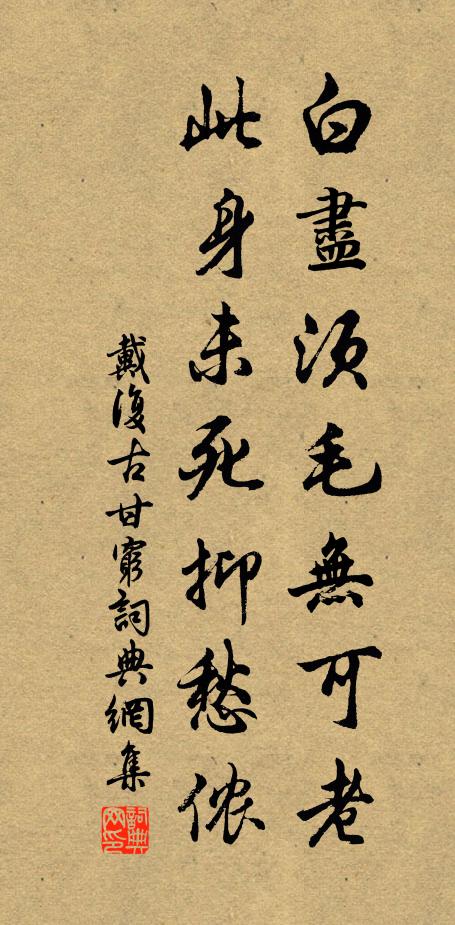 白盡須毛無可老
此身未死抑愁侬
戴復古甘窮詞典網集
詞典网印